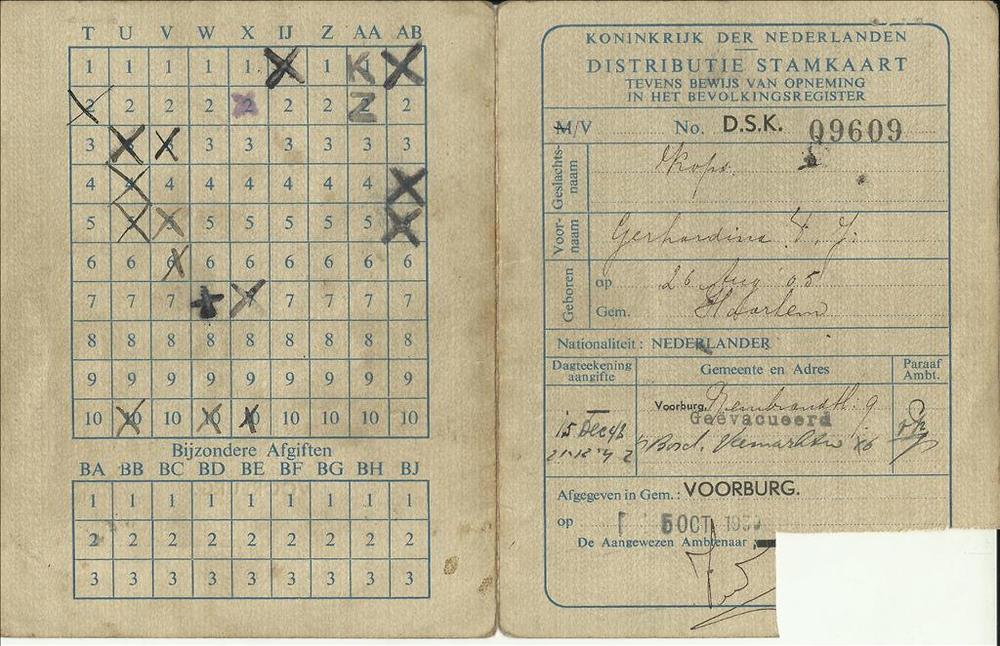 T U V W X IJ Z AA AB
1 1 1 1 1 1 1 K
2 2 2 2 2 2 2 Z 2
3 3 3 3 3 3 3 3 3
4 4 4 4 4 4 4 4 4
5 5 5 5 5 5 5 5 5
6 6 6 6 6 6 6 6 6
7 7 7 7 7 7 7 7
8 8 8 8 8 8 8 8 8
9 9 9 9 9 9 9 9 9
10 10 10 10 10 10 10 10 10
Bijzondere Afgiften
BA BB BC BD BE BF BG BH BJ
1 1 1 1 1 1 1 1 1
2 2 2 2 2 2 2 2 2
3 3 3 3 3 3 3 3 3
KONINKRIJK DER NEDERLANDEN
DISTRIBUTIE STAMKAART
TEVENS BEWIJS VAN OPNEMING
IN HET BEVOLKINGSREGISTER
M/V No. D.S.K. 09609
Geslachts-
naam
Kops.
Voor-
naam
Gerhardina
Geboren
op 26 Aug '05
Gem. Haarlem
Nationaliteit: NEDERLANDER
Dagteekening
aangifte
Gemeente en Adres
Paraaf
Ambt.
Voorburg. Rembrandtl. 9
Geëvacueerd
15 Dec 42
Afgegeven in Gem.: VOORBURG.
op 5 OCT 1939
De Aangewezen Ambtenaar